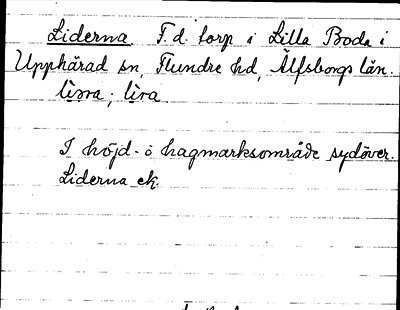 Liderna F.d. torp i Lilla Boda i
Upphärad sn, Flundre hd, Älfsborgs län.
I höjd- o hagmarksområde sydöver.
Liderna ek.